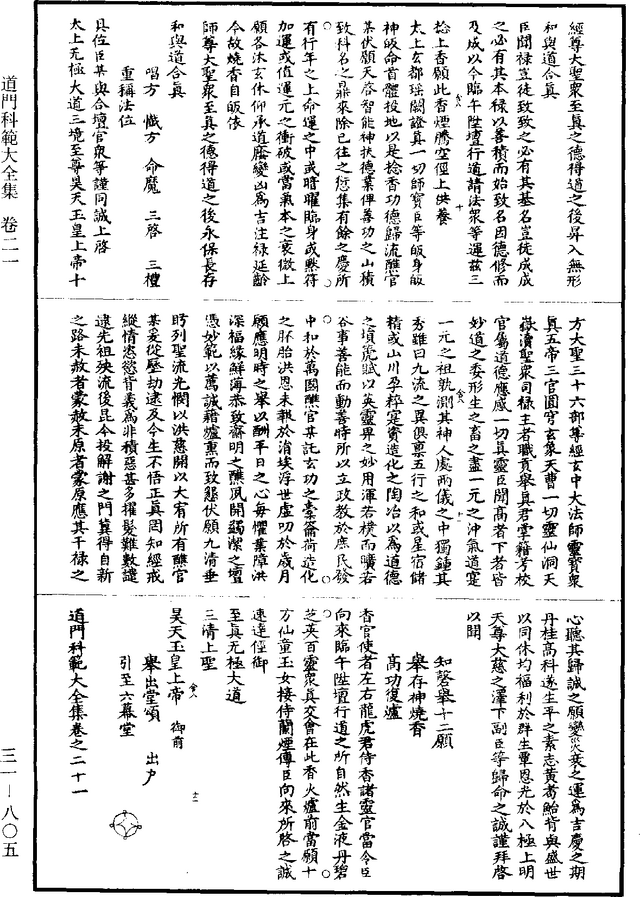 經尊大聖眾至真之德得道之後昇入無形
和與道合真
臣聞祿豈徒致致之必有其基名豈徒成成
之必有其本祿以善積而始致名因德修而
及成以今臨午陞壇行道請法眾等運茲三
捻上香願此香煙騰空徑上供養
太上玄都瑤闕證真一切師寶臣等皈身皈
神皈命首體投地以是捻香功德歸流醮官
某伏願天啓智能神扶德業俾善功之山積
致科名之鼎來除已往之愆集有餘之慶所
有行年之上命運之中或暗曜臨身或黑符
加運或值運元之衝破或當氣本之衰微上
願各沐玄休仰承道廕變凶為吉注祿延齡
今故燒香自皈依
師尊大聖眾至真之德得道之後永保長存
和與道合真
唱方　懺方　命魔　三啓　三禮
重稱法位
具位臣某與合壇官眾等謹同誠上啓
太上無極大道三境至尊昊天玉皇上帝十
方大聖三十六部尊經玄中大法師靈寶眾
真五帝三官圜穹玄象天曹一切靈仙洞天
嶽瀆聖眾司祿王者職貢舉真君掌籍考校
官屬道德應感一切真靈臣聞高者下者皆
妙道之委形生之畜之盡一元之沖氣道寔
一元之祖孰測其神人處兩儀之中獨鍾其
秀雖曰九流之異俱稟五行之和或星宿儲
精或山川孕粹寔資造化之陶冶以為道德
之墳虎賦以英靈畀之妙用渾若樸而曠若
谷事善能而動善時所以立政教於庶民發
中和於萬國醮官某託玄功之橐籥荷造化
之胚胎洪恩未報於涓埃浮世虛叨於歲月
願應明時之舉以酬平日之心每懼業障洪
深福緣鮮薄恭致齋明之醮夙開蠲潔之壇
憑妙範以薦誠藉爐熏而致懇伏願九清垂
盻列聖流光憫以洪慈開以大宥所有醮官
某爰從歷劫逮及今生不悟正真罔知經戒
縱情恣慾背義為非積惡甚多擢髮難數譴
逮先祖殃流後昆今投解謝之門冀得自新
之路未赦者蒙赦未原者蒙原應其千祿之
心聽其歸誠之願變災衰之運為吉慶之期
丹桂高科遂生平之素志黃耇鮐背與盛世
以同休均福利於群生覃恩光於八極上明
天尊大慈之澤下副臣等歸命之誠謹拜啓
以聞
知磬舉十二願
舉存神燒香
高功復爐
香官使者左右龍虎君侍香諸靈官當令臣
向來臨午陞壇行道之所自然生金液丹碧
芝英百靈眾真交會在此香火爐前當願十
方仙童玉女接侍蘭煙傳臣向來所啓之誠
速達徑御
至真無極大道
三清上聖
昊天玉皇上帝　御前
舉出堂頌　出戶
引至六幕堂
道門科範大全集卷之二十一
道門科範大全集　卷二一
三一—八〇五